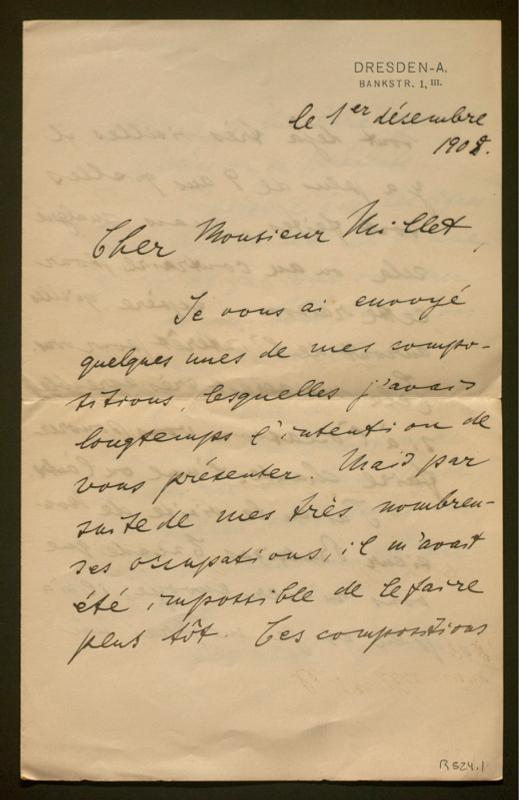 DRESDEN-A.
BANKSTR. 1, III.
le 1er décembre
1908.
Cher Monsieur Millet,
Je vous ai envoyé
quelques unes de mes compo-
sitions, lesquelles j'avais
longtemps l'intention de
vous présenter. Mais par
suite de mes très nombreu-
ses occupations, il m'avait
été impossible de le faire
plus tôt. Ces compositions